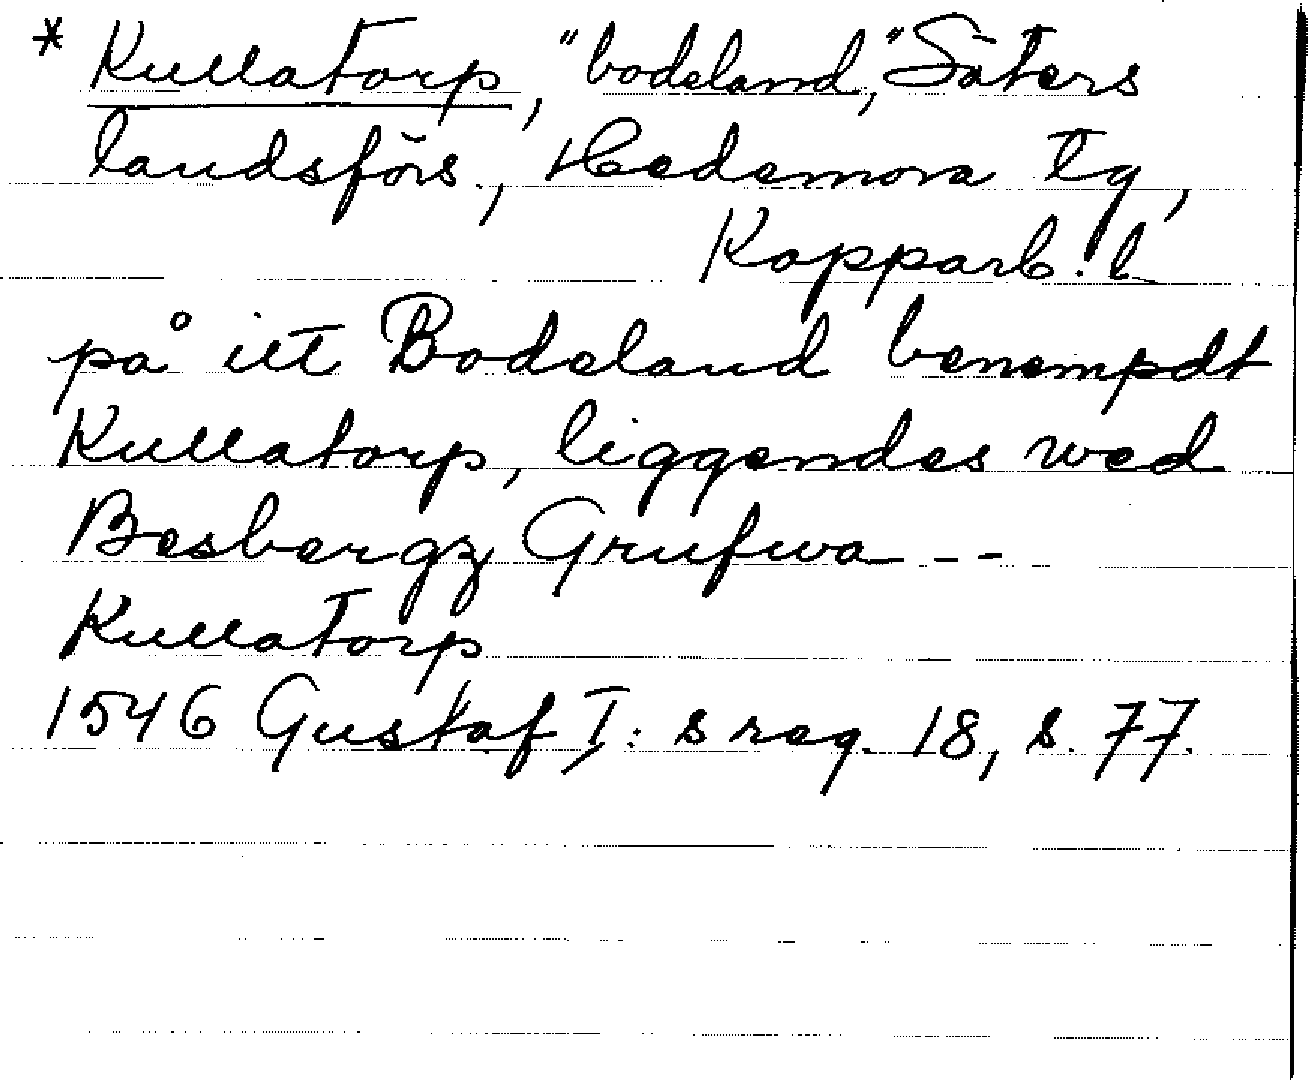 * Kullatorp, "bodeland," Säters
landsförs., Hedemora tg,
Kopparb. l
på itt Bodeland benempdt
Kullatorp, liggendes wed
Besbergz Grufwa - -
Kullatorp
1546 Gustaf I:s reg. 18, s. 77.